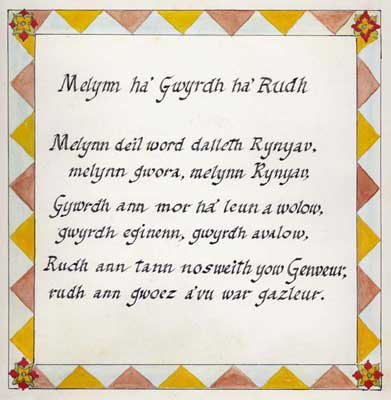 Melynn ha' Gwyrdh ha' Rudh
Melynn deil word dalleth Kynyav,
melynn gwora, melynn Kynyav,
Gywrdh ann mor ha' leun a wolow,
gwyrdh eginenn, gwyrdh avalow,
Rudh ann tann nosweith yow Genveur,
rudh ann gwoez a'vu war gazleur.